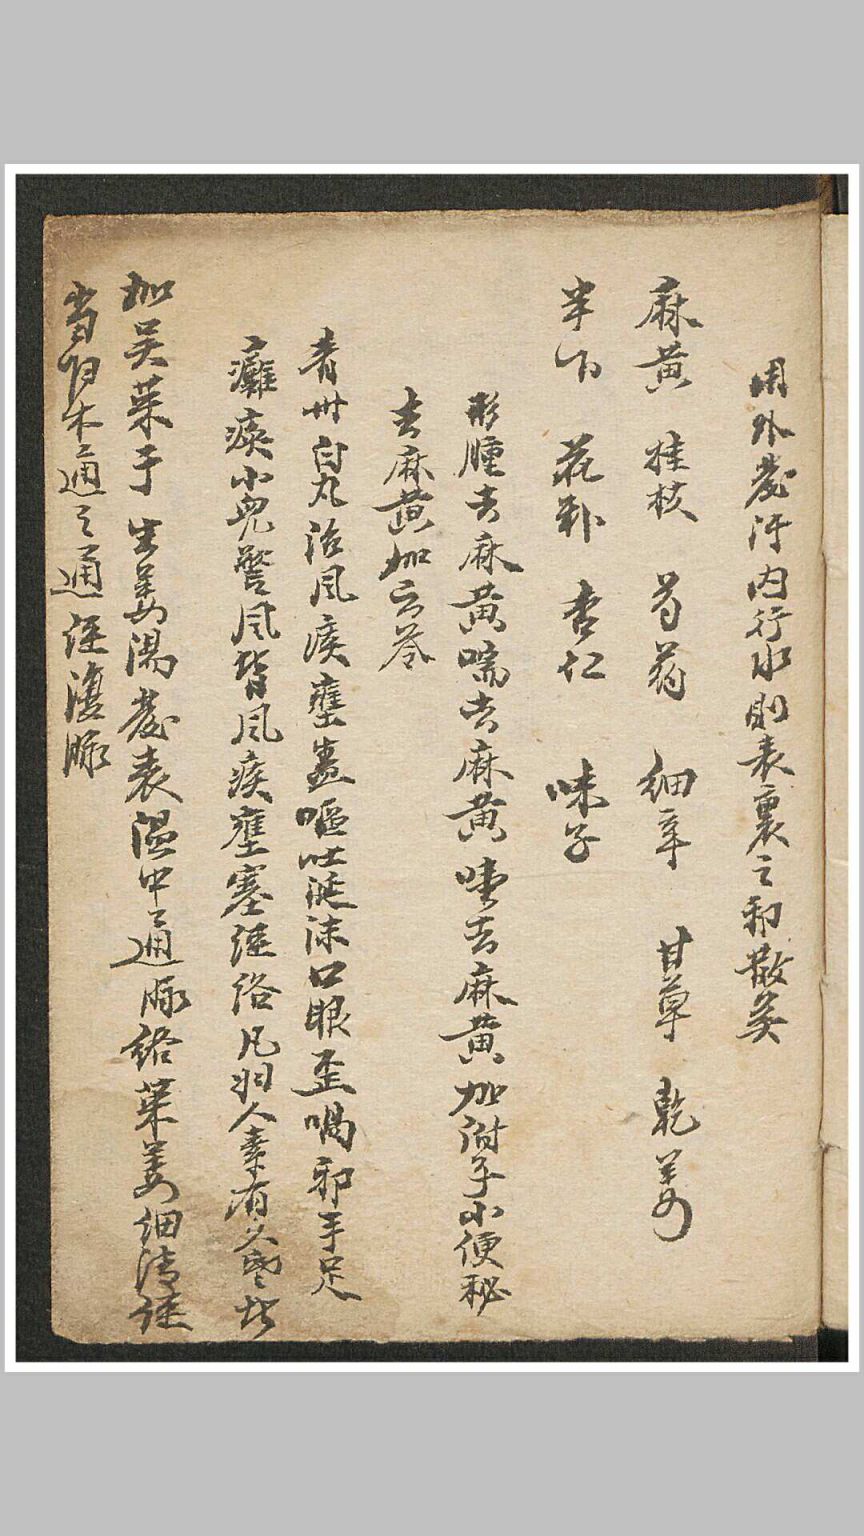 用外發汗内行水則表裏之邪散矣
麻黄 桂枝 芍药 細辛 甘草 乾姜
半下 花粉 杏仁 味子
形腫去麻黄喘去麻黄噎去麻黄加附子小便秘
去麻黄加云苓
青州白丸治风痰壅盛嘔吐涎沫口眼歪喎邪手足
癱瘓小兒驚风皆风痰壅塞經络凡 人素有久寒者
加吴茱于生姜湯發表温中通脉絡茱姜細清經
当归木通之通經復脉